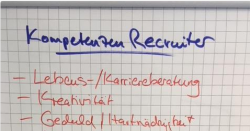 Kompetenzen Recruiter
- Lebens-/Karriereberatung
- Kreativität
- Geduld / Hartnäckigkeit